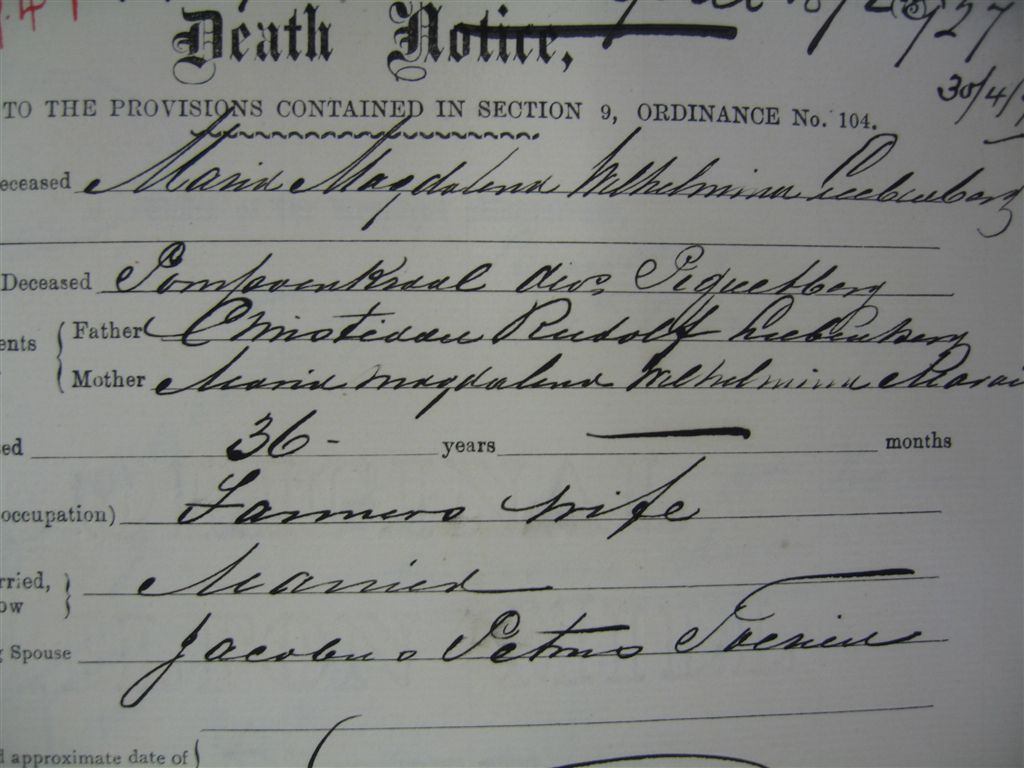 Death Notice,
TO THE PROVISIONS CONTAINED IN SECTION 9, ORDINANCE No. 104.
30/4/
eceased Maria Magdalena Wilhelmina Liebenberg
Deceased Pompoenkraal div. Piquetberg
ents
Father Christiaan Rudolf Liebenberg
Mother Maria Magdalena Wilhelmina Marai
ed 36 - years — months
occupation) Farmers wife
rried,
ow Married
g Spouse Jacobus Petrus
d approximate date of